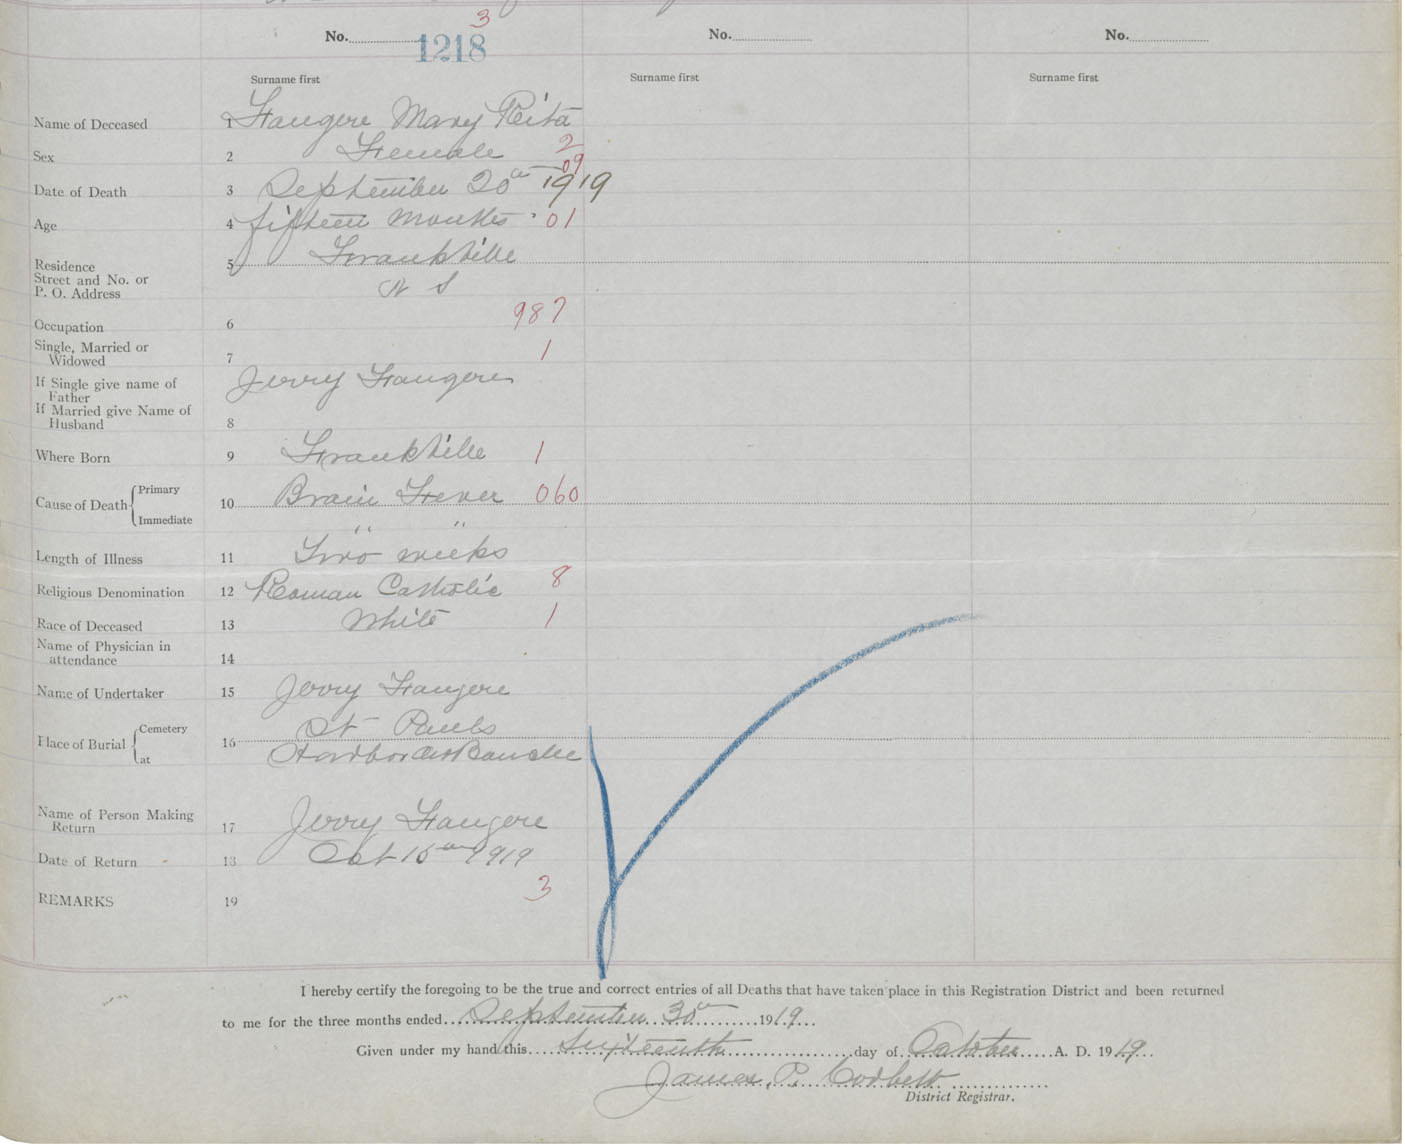 3
No. 1218
No.
No.
Surname first
Surname first
Surname first
Name of Deceased 1 Faugere Mary Rita
Sex 2 Female 2
09
Date of Death 3 September 20th 1919
Age 4 fifteen months 01
Residence 5 Frankville
Street and No. or
P. O. Address N S
987
Occupation 6
Single, Married or
Widowed 7 1
If Single give name of Jerry Faugere
Father
If Married give Name of
Husband 8
Where Born 9 Frankville 1
Cause of Death Primary 10 Brain Fever 060
Immediate " "
Length of Illness 11 Two weeks
Religious Denomination 12 Roman Catholic 8
Race of Deceased 13 White 1
Name of Physician in
attendance 14
Name of Undertaker 15 Jerry Faugere
Place of Burial Cemetery 16 St Pauls
at Harbor Au Bouche
Name of Person Making
Return 17 Jerry Faugere
Date of Return 18 Oct 15th 1919
3
REMARKS 19
I hereby certify the foregoing to be the true and correct entries of all Deaths that have taken place in this Registration District and been returned
to me for the three months ended September 30th 1919
Given under my hand this Sixteenth day of October A. D. 1919
James P. Corbett
District Registrar.